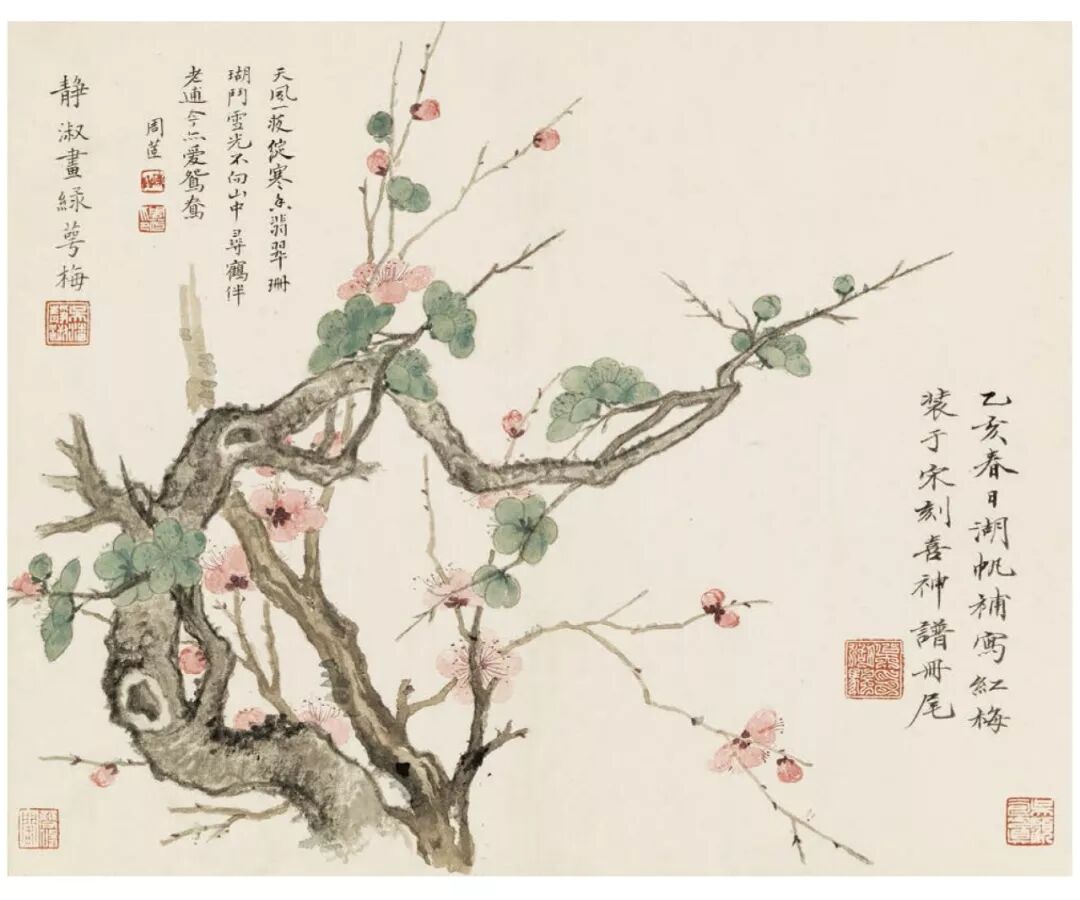 乙亥春日湖帆補寫紅梅
裝于宋刻喜神譜册尾
天風一夜綻寒香翡翠珊
瑚鬥雪光不向山中尋鶴伴
老逋今亦愛鴛鴦
周茝
静淑畫緑萼梅